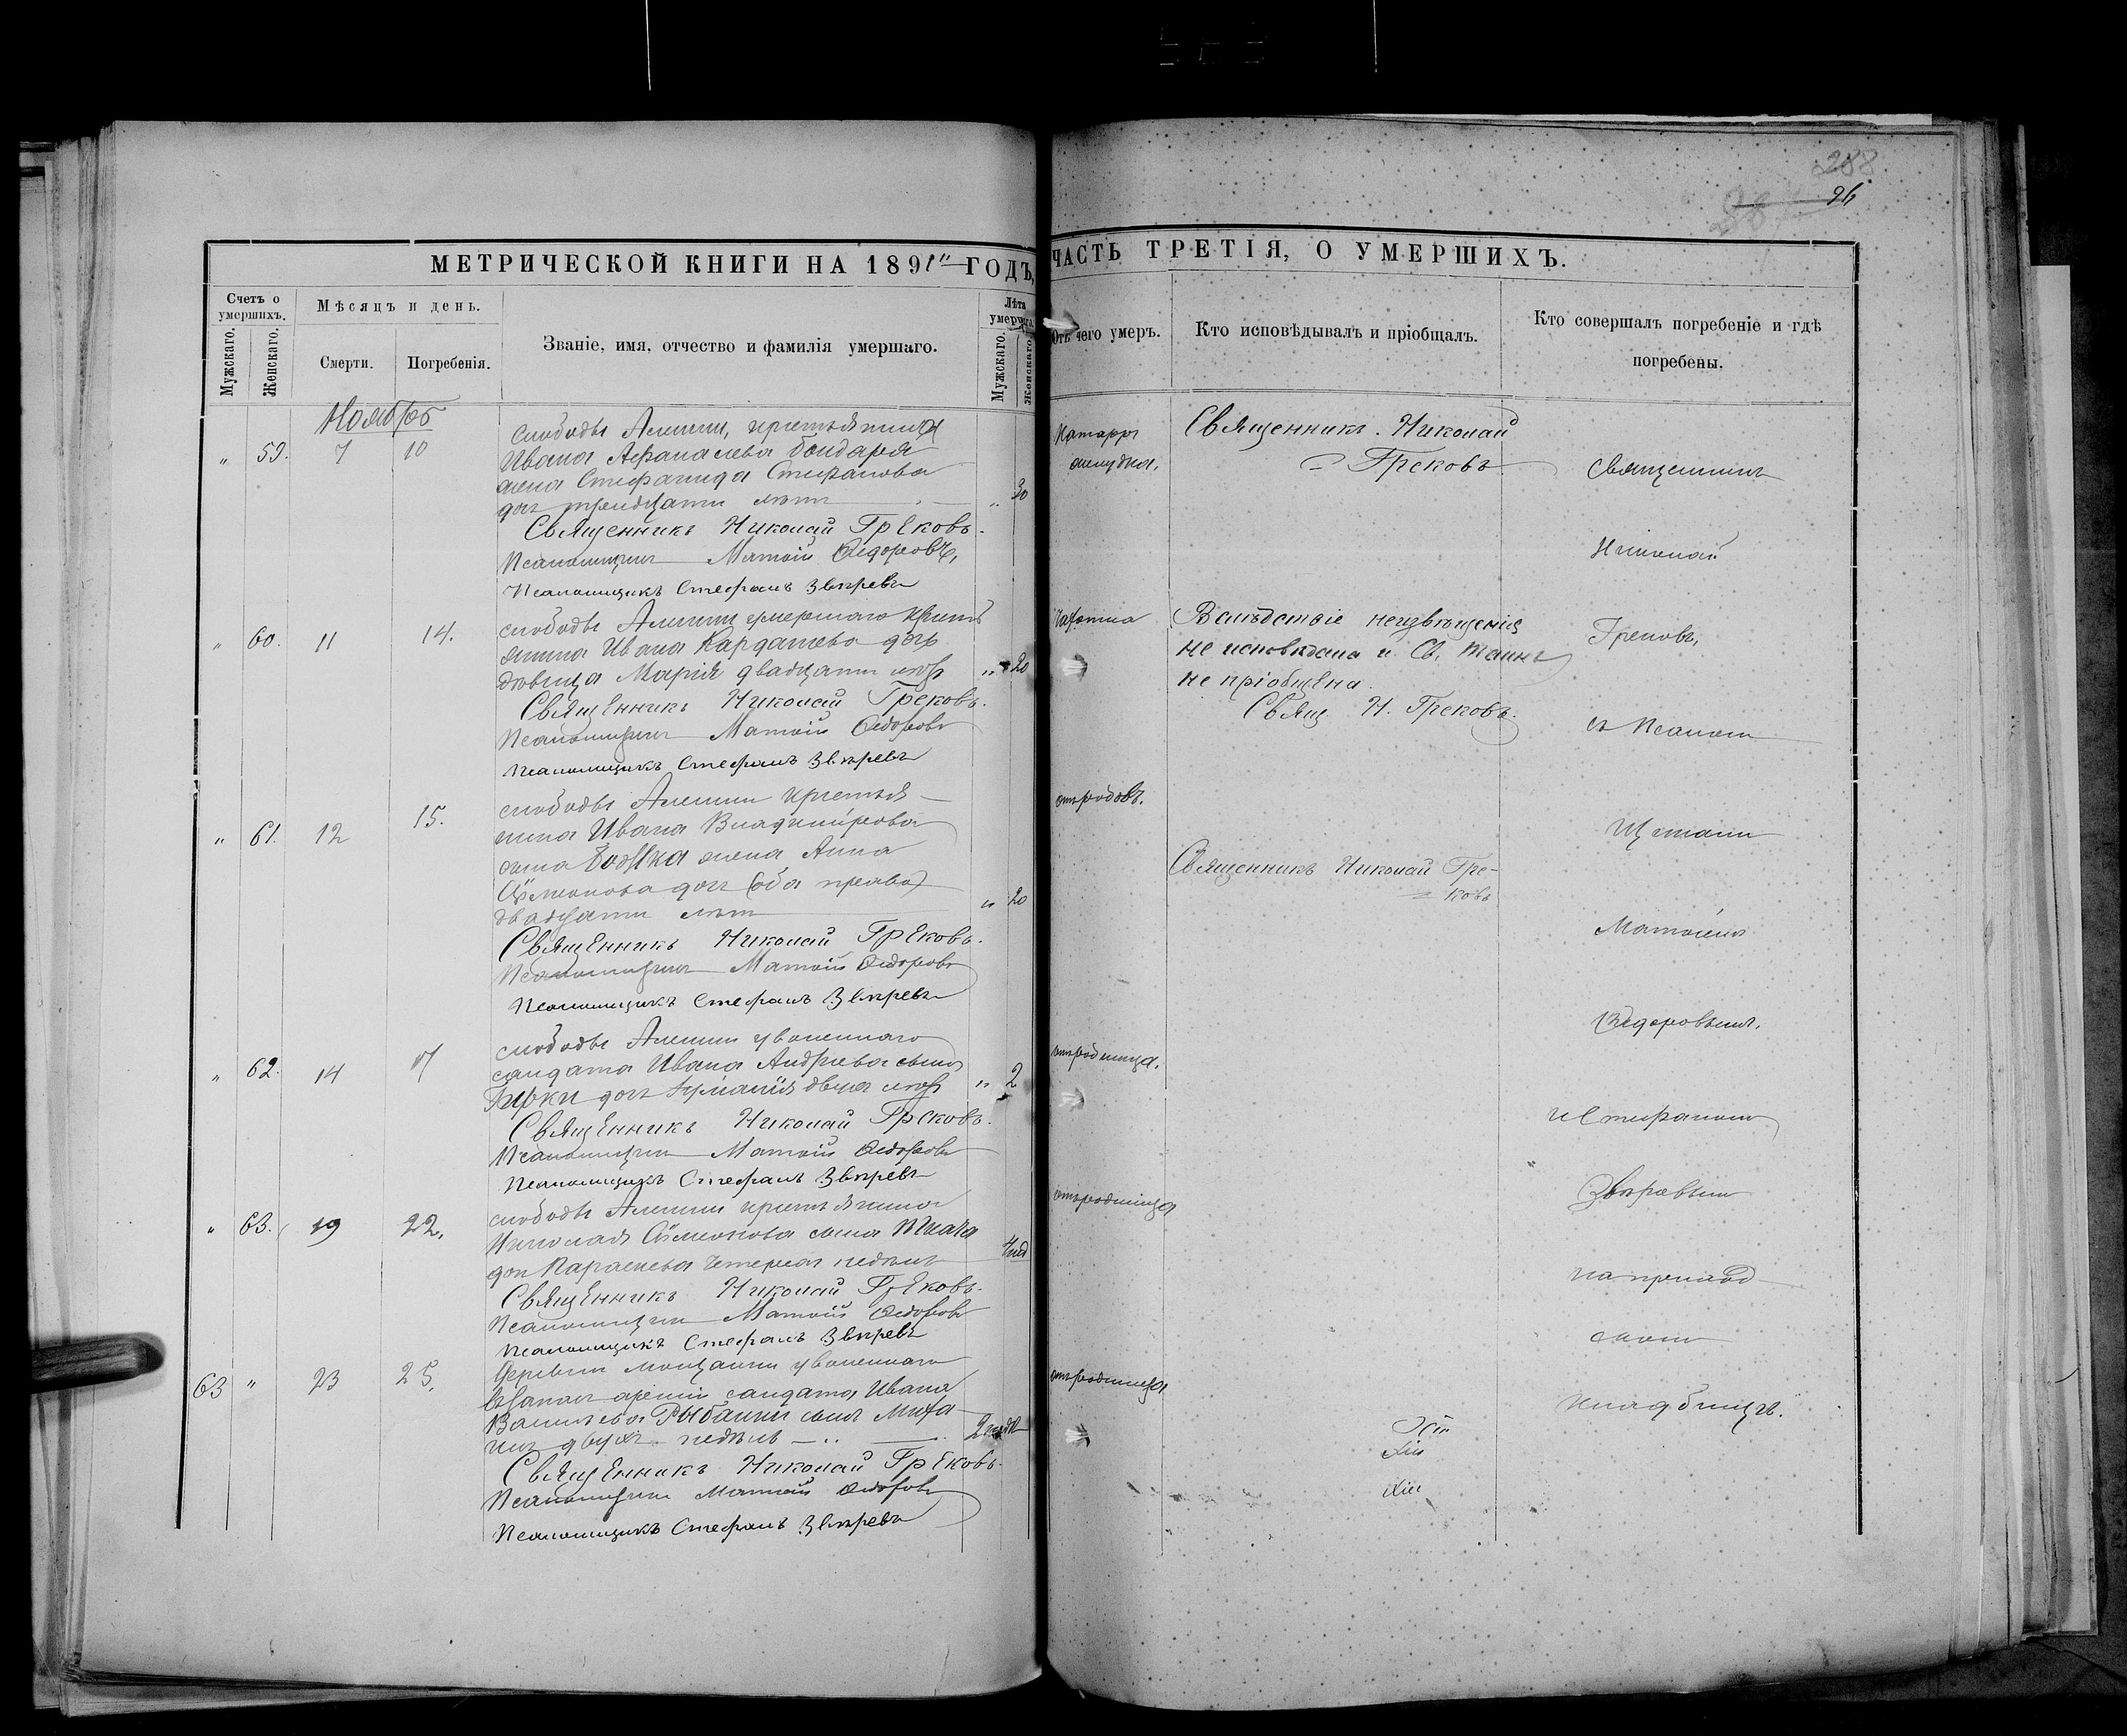 288
26
МЕТРИЧЕСКОЙ КНИГИ НА 1891 ГОДЪ,
ЧАСТЬ ТРЕТІЯ, О УМЕРШИХЪ.
Счетъ о умершихъ.
Мѣсяцъ и день.
Званіе, имя, отчество и фамилія умершаго.
Лѣта умершаго.
Мужскаго.
Женскаго.
Смерти.
Погребенія.
Мужскаго.
Женскаго.
Отъ чего умеръ.
Кто исповѣдывалъ и пріобщалъ.
Кто совершалъ погребеніе и гдѣ
погребены.
Ноябрь
" 59. 7 10
слободы крестьянина
Ивана Афанасьева бондаря
жена Стефанида Стефанова
доч тридцати лѣтъ " 30
Священникъ Николай Грековъ.
Псаломщикъ Матѳій Ѳедоровъ,
Псаломщикъ Стефанъ Звѣревъ
Катарръ
желудка.
Священникъ. Николай
= Грековъ
" 60. 11 14.
слободы умершаго кресть
янина Ивана Кардашева дочь
дѣвица Марія двадцати лѣтъ " 20
Священникъ Николай Грековъ.
Псаломщикъ Матѳій Ѳедоровъ
Псаломщикъ Стефанъ Звѣревъ
Чахотка
Вслѣдствіе неизвѣщенія
не исповѣдана и Св. Таинъ
не пріобщена.
Свящ. Н. Грековъ.
" 61. 12 15.
слободы крестья
нина Ивана Владимірова
сына жена Анна
Сѵмеонова доч (оба православ)
двадцати лѣтъ " 20
Священникъ Николай Грековъ.
Псаломщикъ Матѳій Ѳедоровъ
Псаломщикъ Стефанъ Звѣревъ
отъ родовъ.
Священникъ Николай Гре-
= ковъ
" 62. 14 17
слободы уволеннаго
солдата Ивана Андреева сына
доч двухъ лѣтъ " 2
Священникъ Николай Грековъ.
Псаломщикъ Матѳій Ѳедоровъ
Псаломщикъ Стефанъ Звѣревъ
отъ родимца.
" 63. 19 22.
слободы крестьянина
Николая Сѵмеонова сына Ткача
доч Параскева четырехъ недѣль 4 нед
Священникъ Николай Грековъ.
Псаломщикъ Матѳій Ѳедоровъ
Псаломщикъ Стефанъ Звѣревъ
отъ родимца
63 " 23 25.
Деревни уволеннаго
въ запасъ арміи солдата Ивана
Васильева сынъ Миха
илъ двухъ недѣль 2 недѣ
Священникъ Николай Грековъ.
Псаломщикъ Матѳій Ѳедоровъ
Псаломщикъ Стефанъ Звѣревъ
отъ родимца
Священникъ
Николай
Грековъ,
съ Псалом
щиками
Матѳіемъ
Ѳедоровымъ,
и Стефаномъ
Звѣревымъ
на приход
скомъ
кладбищѣ.